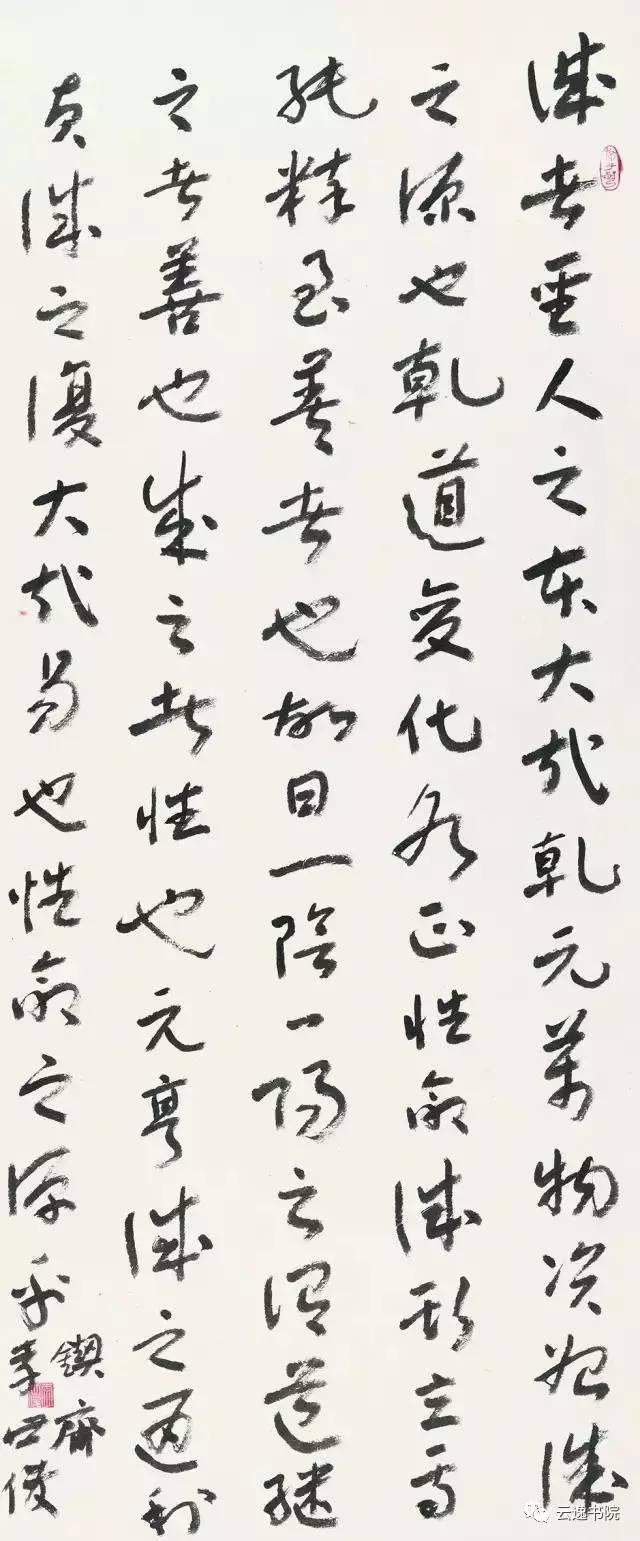 誠者聖人之本大哉乾元萬物資始誠
之源也乾道變化各正性命誠斯立焉
純粹至善者也故曰一陰一陽之謂道繼
之者善也成之者性也元亨誠之通利
貞誠之復大哉易也性命之源乎
鍥齋
李
云逸书院